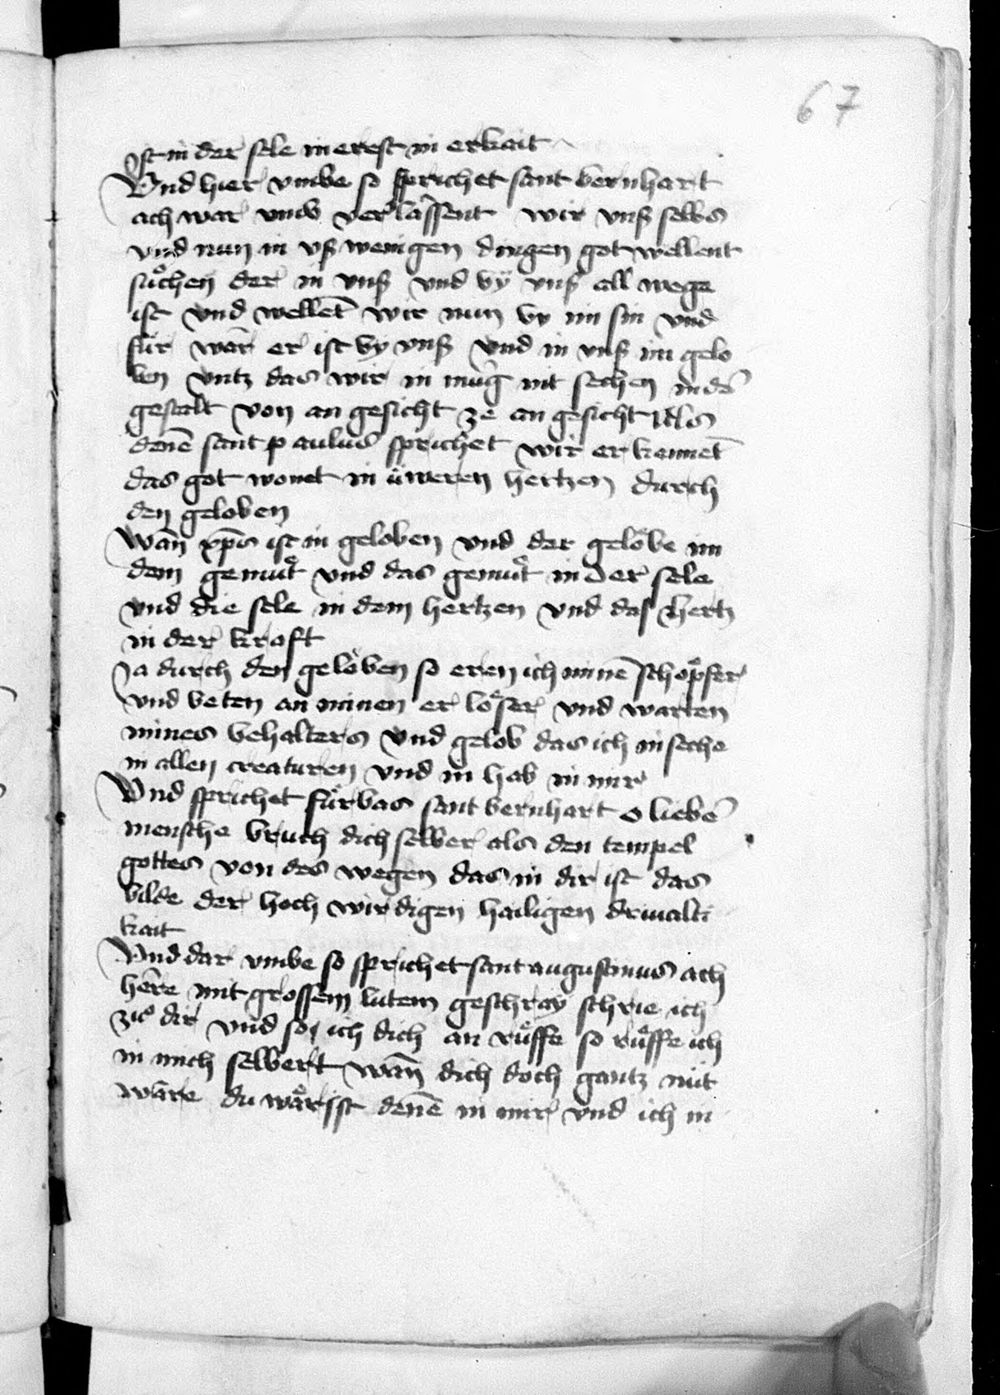 67
Ist in der sele in erest in erkait
Vnd hier vmbe so sprichet sant bernhart
ach war vmb verlassent wir vnß selbs
vnd nun in vß wenigen dingen got wellent
suͦchen der in vnß vnd by vnß all wege
ist vnd wellet̄ wir nun by im sin vnd
fúr war er ist by vnß vnd in vnß im gelo
ben vntz das wir in muḡ nit sechen in de᷑
gestalt von an gesicht ze an gesicht Als
denē sant paulus sprichet wir er kennet̄
das got wonet in úweren hertzen durch
den geloben
Wan̄ xp̄s ist in geloben vnd der gelobe im
dem gemuͤt vnd das gemuͤt in der sele
vnd die sele in dem hertzen vnd das hertz
in der kraft
Ja durch den geloben so eren ich minē schoͤpfer
vnd beten an minen er loͤser vnd warten
mines behalters vnd gelob das ich in seche
in allen creaturen vnd in hab in mir
Vnd sprichet fúrbas sant bernhart o liebe᷑
mensche bruch dich selber als den tempel
gottes von des wegen das in dir ist das
bilde der hoch wirdigen hailigen driualti
kait
Vnd dar vmbe so sprichet sant augustinus ach
her̄e mit grossem lutem geschray schrie ich
zuͦ dir vnd so ich dich an ruͤffe so ruͤffe ich
in mich selbert wan̄ dich doch gantz nút
wāre du waͤrist denē in mir vnd ich in